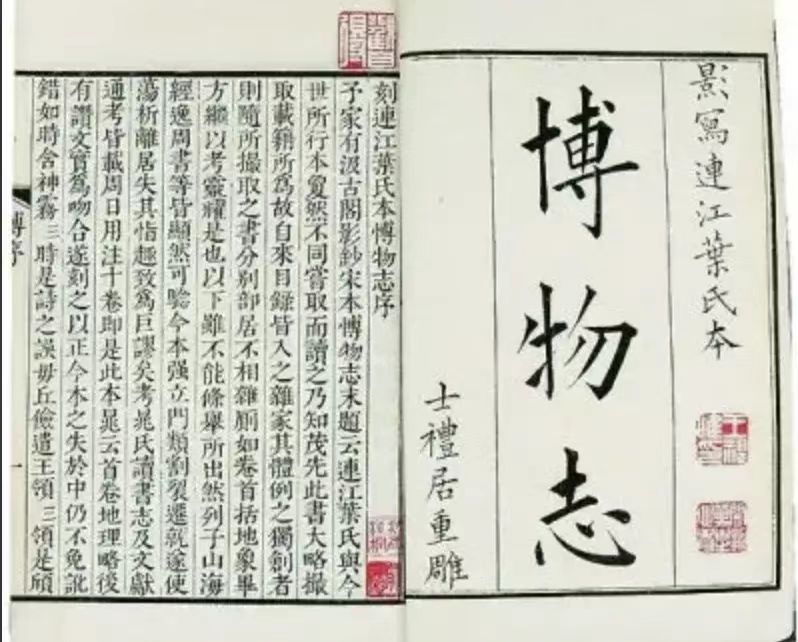 影寫連江葉氏本
博物志
士禮居重雕
刻連江葉氏本博物志序
予家有汲古閣影鈔宋本博物志末題云連江葉氏與今
世所行本敻然不同嘗取而讀之乃知茂先此書大略撮
取載籍所爲故自來目錄皆入之雜家其體例之獨創者
則隨所撮取之書分别部居不相雜廁如卷首括地象畢
方繼以考靈耀是也以下雖不能條舉所出然列子山海
經逸周書等皆顯然可驗今本强立門類割裂遷就遂使
蕩析離居失其恉趣致爲巨謬矣考晁氏讀書志及文獻
通考皆載周日用注十卷即是此本晁云首卷地理略後
有讚文實爲吻合遂刻之以正今本之失於中仍不免訛
錯如時含神霧三時是詩之誤毋丘儉遣王領三領是頎
博序
一